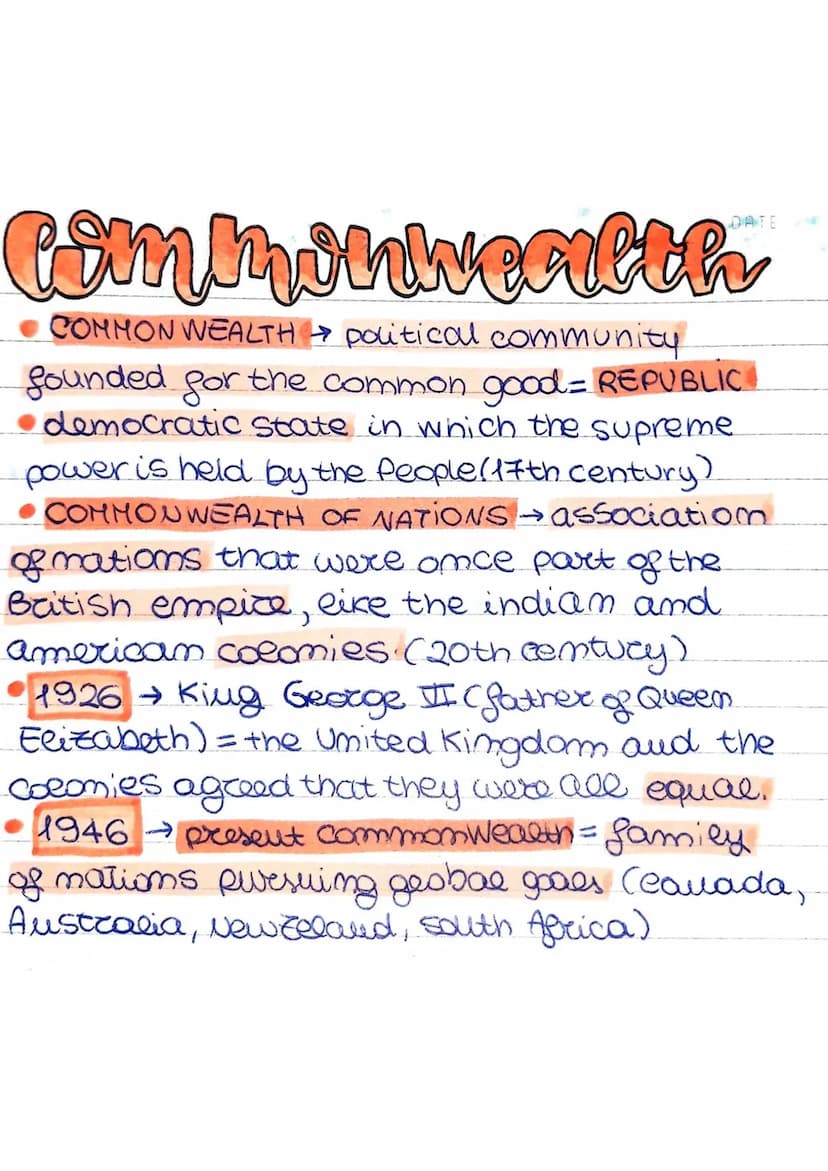 DATE
Commonwealth
• COMMONWEALTH → political community
founded for the common good = REPUBLIC
• democratic state in which the supreme
power is held by the People (17th century)
• COMMONWEALTH OF NATIONS → association
of nations that were once part of the
British empire, like the indian and
american colonies (20th century)
• 1926 → King George VI (father of Queen
Elizabeth) = the United Kingdom and the
colonies agreed that they were all equal.
• 1946 → present commonwealth = family
of nations pursuing global goals (Canada,
Australia, New Zeland, South Africa)